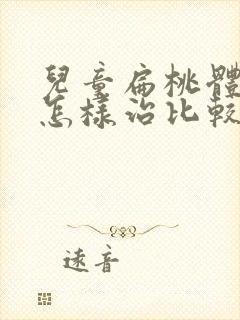 兒童扁桃體
怎樣治比較
遠音